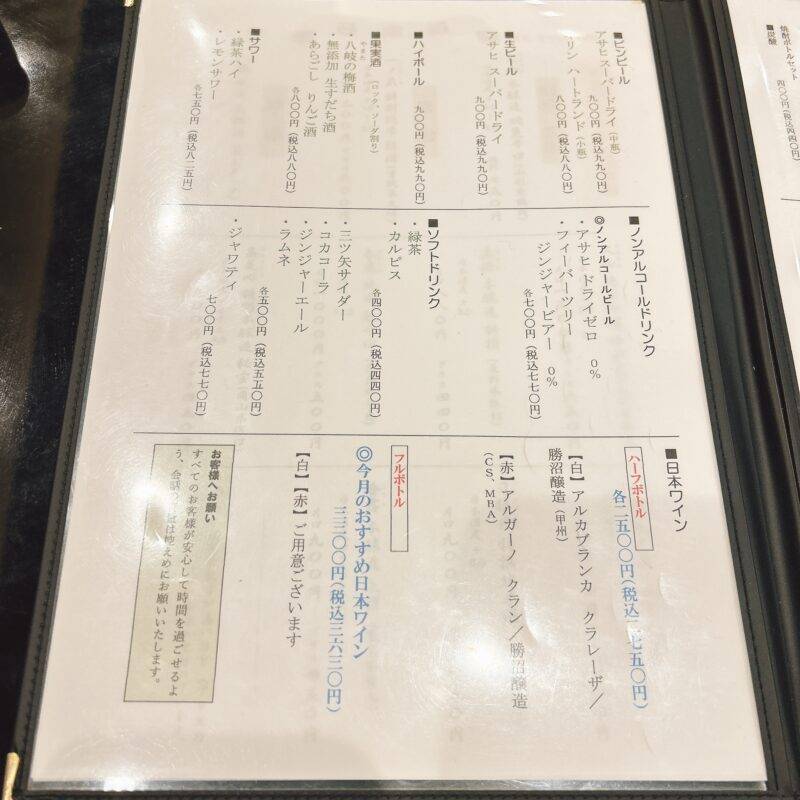 焼酎ボトルセット
・炭酸
四〇〇円(税込四四〇円)
■ビンビール
アサヒスーパードライ(中瓶)
九〇〇円(税込九九〇円)
リン ハートランド(小瓶)
八〇〇円(税込八八〇円)
■生ビール
アサヒ スーパードライ
九〇〇円(税込九九〇円)
■ハイボール
九〇〇円(税込九九〇円)
■果実酒(ロック、ソーダ割り)
やまた
・八岐の梅酒
・無添加 生すだち酒
・あらごし りんご酒
各八〇〇円(税込八八〇円)
■サワー
・緑茶ハイ
・レモンサワー
各七五〇円(税込八二五円)
■ノンアルコールドリンク
◎ノンアルコールビール
・アサヒ ドライゼロ 0%
・フィーバーツリー
ジンジャービアー 0%
各七〇〇円(税込七七〇円)
■ソフトドリンク
・緑茶
・カルピス
各四〇〇円(税込四四〇円)
・三ツ矢サイダー
・コカコーラ
・ジンジャーエール
・ラムネ
各五〇〇円(税込五五〇円)
・ジャワティ
七〇〇円(税込七七〇円)
■日本ワイン
ハーフボトル
各二五〇〇円(税込二七五〇円)
【白】アルカブランカ クラレーザ/
勝沼醸造(甲州)
【赤】アルガーノ クラン/勝沼醸造
(CS、MBA)
フルボトル
◎今月のおすすめ日本ワイン
三三〇〇円(税込三六三〇円)
【白】【赤】ご用意ございます
お客様へお願い
すべてのお客様が安心して時間を過ごせるよ
う、会話の声量は控えめにお願いいたします。